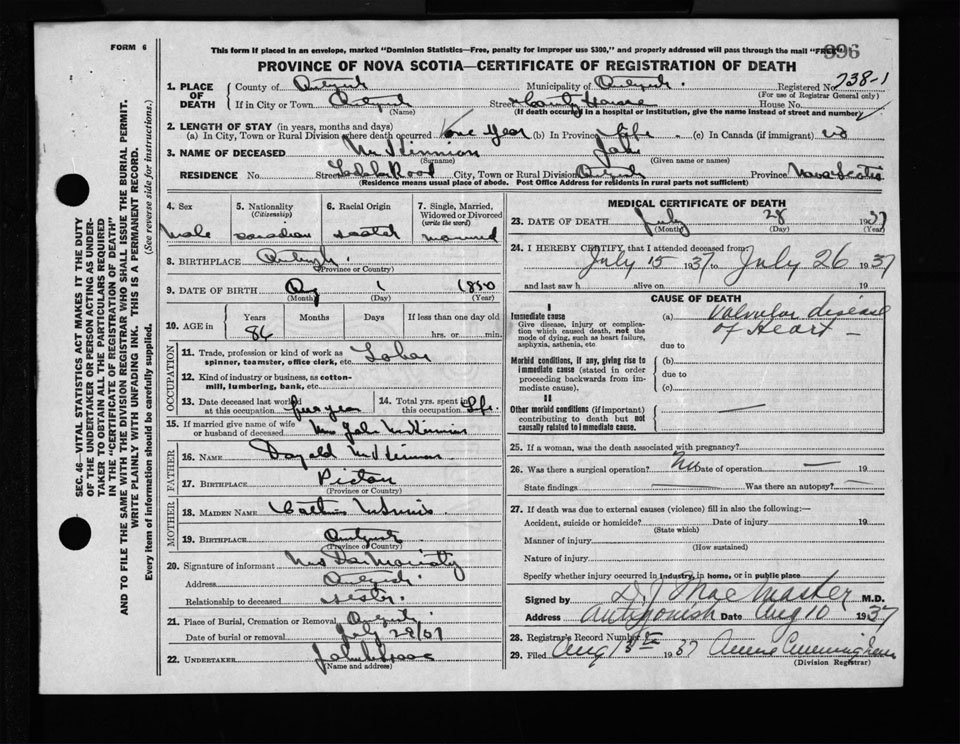 FORM 6
This form if placed in an envelope, marked "Dominion Statistics—Free, penalty for improper use $300," and properly addressed will pass through the mail "FREE"
896
PROVINCE OF NOVA SCOTIA—CERTIFICATE OF REGISTRATION OF DEATH
1. PLACE OF DEATH
County of
Municipality of
Registered No. 738-1
(For use of Registrar General only)
If in City or Town
(Name)
Street County House
House No.
(If death occurred in a hospital or institution, give the name instead of street and number)
2. LENGTH OF STAY (in years, months and days)
(a) In City, Town or Rural Division where death occurred one Year (b) In Province life (c) In Canada (if immigrant)
3. NAME OF DECEASED McKinnon John
(Surname) (Given name or names)
RESIDENCE No. Street Road City, Town or Rural Division Province Nova Scotia
(Residence means usual place of abode. Post Office Address for residents in rural parts not sufficient)
4. Sex
male
5. Nationality
(Citizenship)
canadian
6. Racial Origin
scotch
7. Single, Married, Widowed or Divorced
(write the word)
married
8. BIRTHPLACE
(Province or Country)
9. DATE OF BIRTH 1 1850
(Month) (Day) (Year)
10. AGE in
Years Months Days If less than one day old
86 hrs. or min.
OCCUPATION
11. Trade, profession or kind of work as spinner, teamster, office clerk, etc. Labor
12. Kind of industry or business, as cotton-mill, lumbering, bank, etc.
13. Date deceased last worked at this occupation
14. Total yrs. spent in this occupation Life
15. If married give name of wife or husband of deceased Mrs John McKinnon
FATHER
16. NAME
17. BIRTHPLACE Pictou
(Province or Country)
MOTHER
18. MAIDEN NAME
19. BIRTHPLACE
(Province or Country)
20. Signature of informant
Address
Relationship to deceased sister
21. Place of Burial, Cremation or Removal
Date of burial or removal July 29/37
22. UNDERTAKER
(Name and address)
MEDICAL CERTIFICATE OF DEATH
23. DATE OF DEATH July 28 1937
(Month) (Day) (Year)
24. I HEREBY CERTIFY, that I attended deceased from
July 15 1937 to July 26 1937
and last saw h alive on 19
CAUSE OF DEATH
I
Immediate cause
Give disease, injury or complication which caused death, not the mode of dying, such as heart failure, asphyxia, asthenia, etc.
(a) Valvular disease of Heart —
due to
Morbid conditions, if any, giving rise to immediate cause (stated in order proceeding backwards from immediate cause).
(b)
due to
(c)
II
Other morbid conditions (if important) contributing to death but not causally related to immediate cause. —
25. If a woman, was the death associated with pregnancy?
26. Was there a surgical operation? No Date of operation — 19
State findings Was there an autopsy? —
27. If death was due to external causes (violence) fill in also the following:—
Accident, suicide or homicide? Date of injury 19
(State which)
Manner of injury
(How sustained)
Nature of injury
Specify whether injury occurred in industry, in home, or in public place
Signed by MacMaster M.D.
Address Antigonish Date Aug 10 1937
28. Registrar's Record Number
29. Filed Aug 1937
(Division Registrar)
SEC. 46—VITAL STATISTICS ACT MAKES IT THE DUTY
OF THE UNDERTAKER OR PERSON ACTING AS UNDER-
TAKER TO OBTAIN ALL THE PARTICULARS REQUIRED
IN THE "CERTIFICATE OF REGISTRATION OF DEATH"
AND TO FILE THE SAME WITH THE DIVISION REGISTRAR WHO SHALL ISSUE THE BURIAL PERMIT.
WRITE PLAINLY WITH UNFADING INK. THIS IS A PERMANENT RECORD.
Every item of information should be carefully supplied. (See reverse side for instructions.)